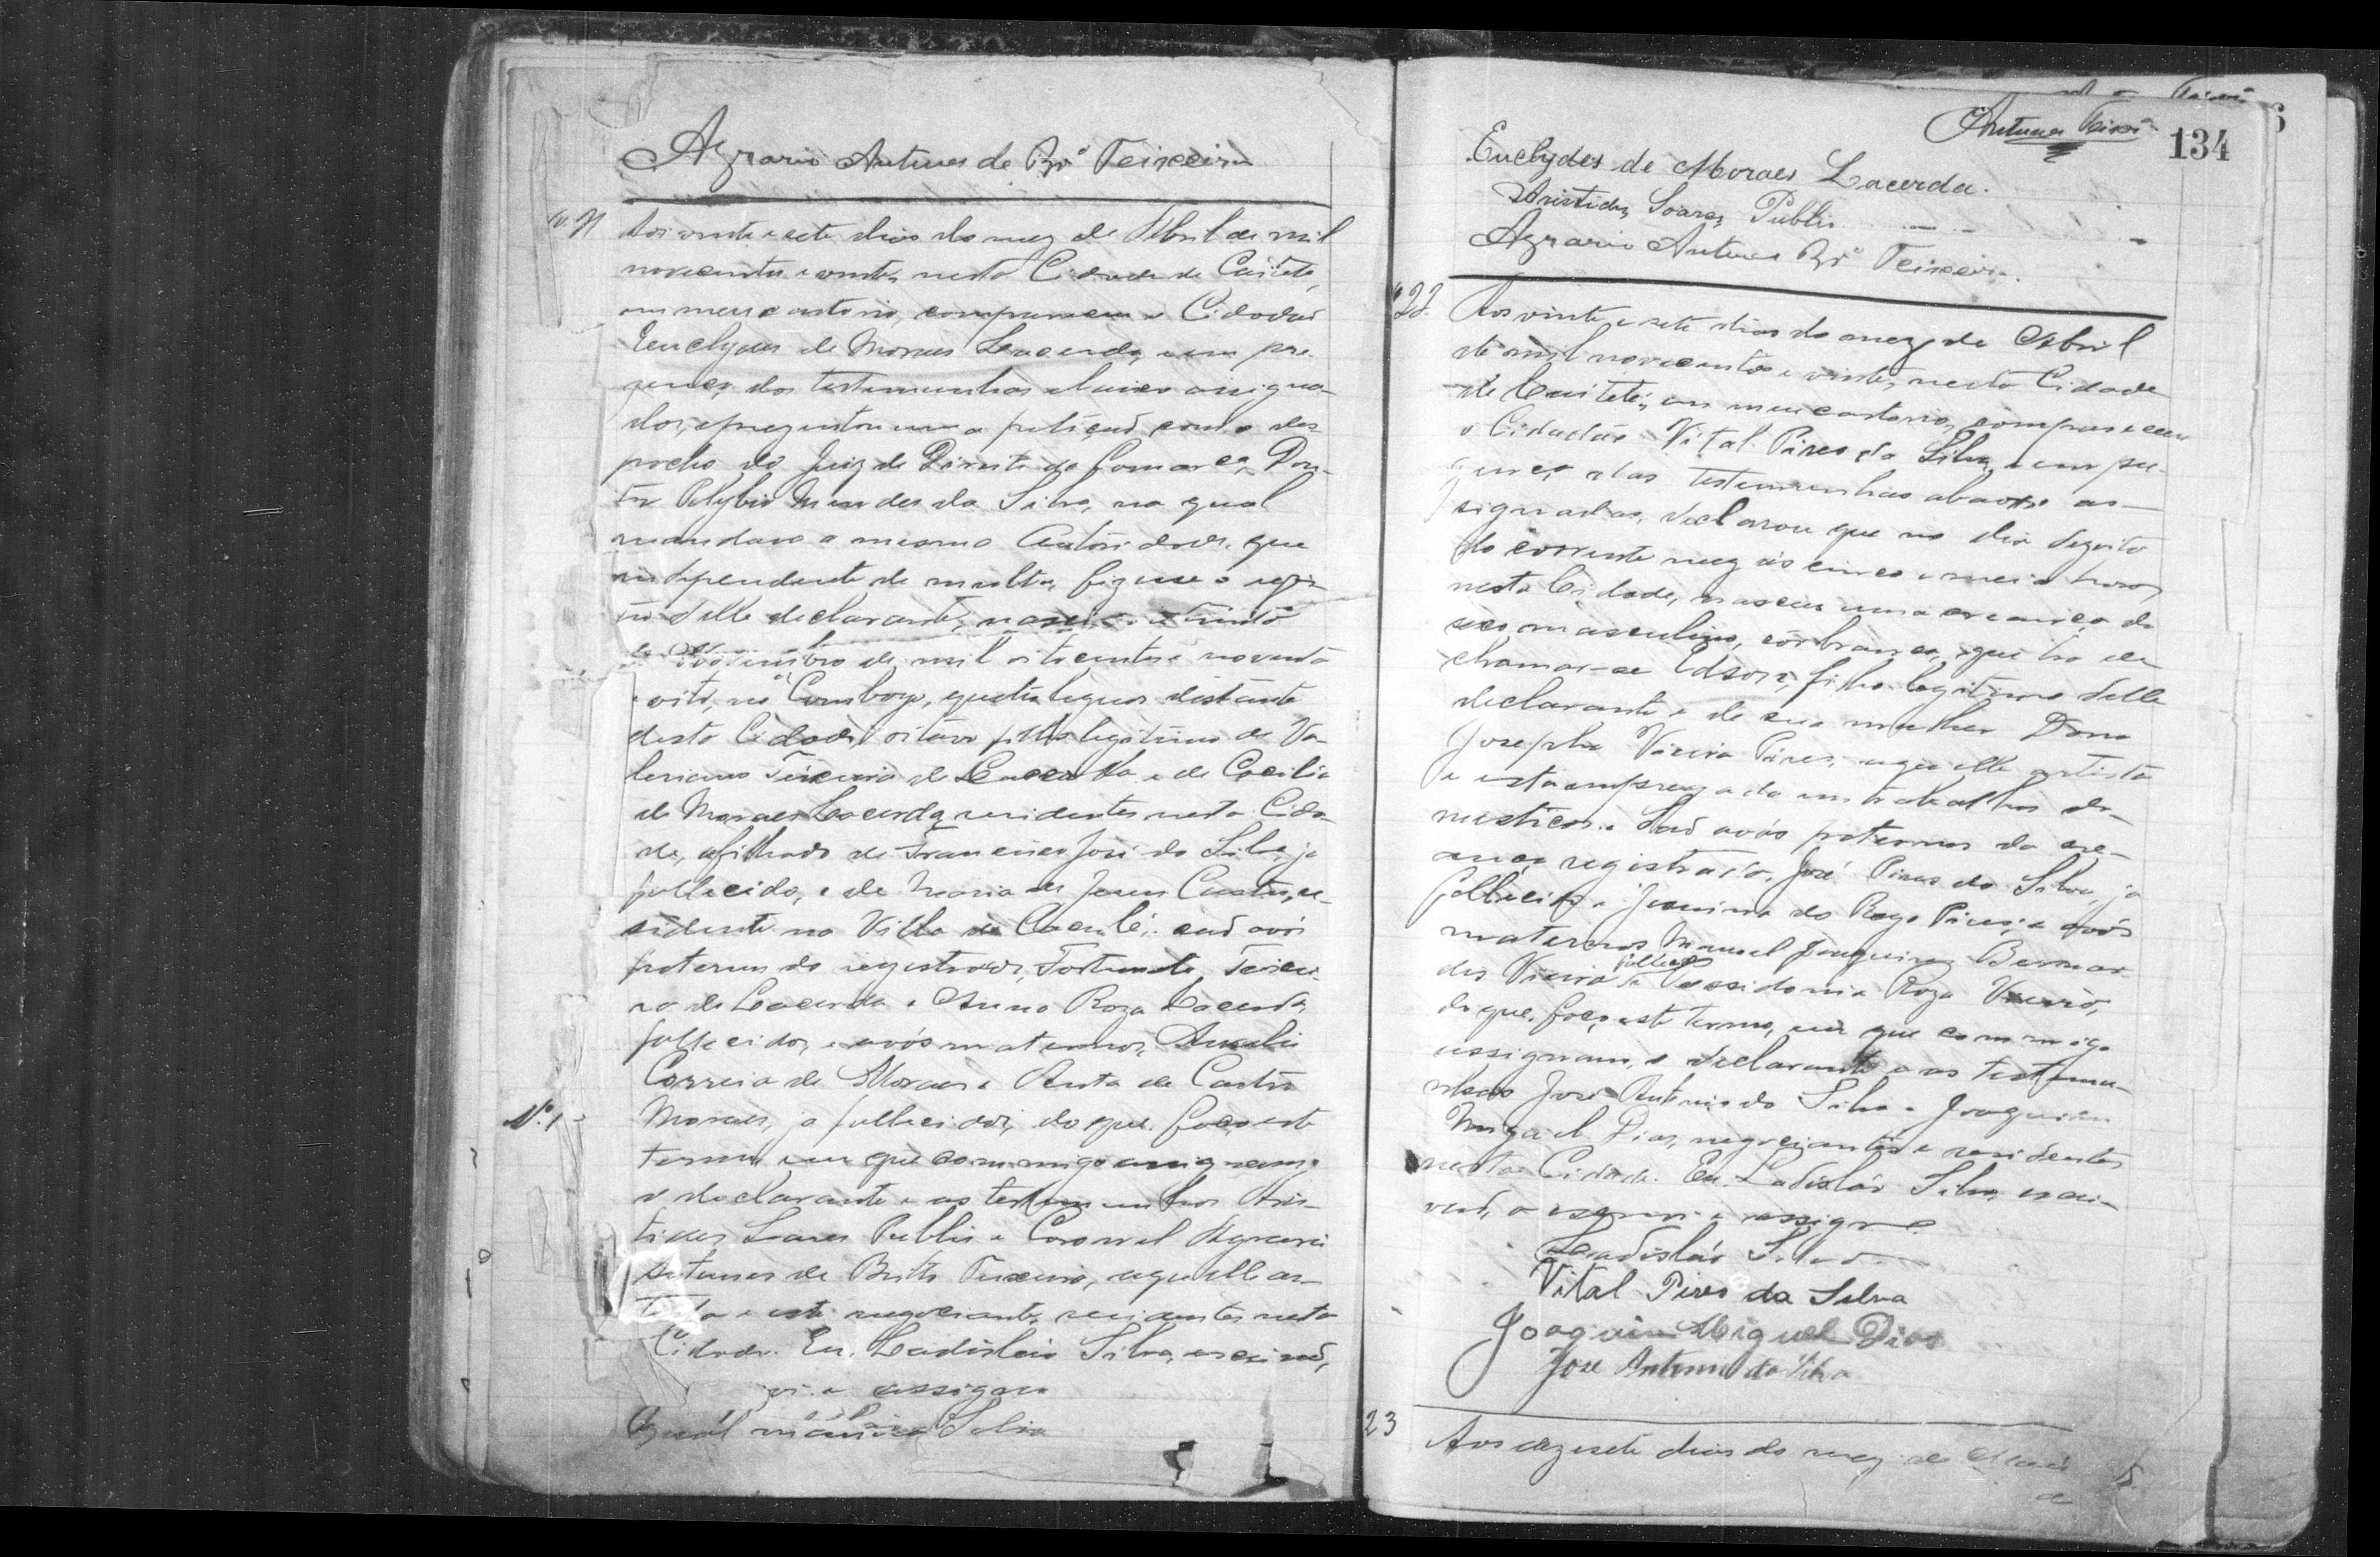 Agrario Antunes de Br.º Teixeira
N. 21
Aos vinte e sete dias do mez de Abril de mil
novecentos e vinte, nesta Cidade de Caiteté,
em meu cartorio, compareceu o Cidadão
Euclydes de Moraes Lacerda, e em pre-
sença das testemunhas abaixo assigna-
das, apresentou uma petição com o des-
pacho do Juiz de Direito da Comarca, Dou-
tor Polybio Mendes da Silva, na qual
mandava a mesma Autoridade que
independente de multa, fizesse o regis-
tro delle declarante, nascido a trinta
de Novembro de mil oitocentos e noventa
e oito, no quatro leguas distante
desta Cidade, oitavo filho legitimo de Va-
leriano Teixeira de Lacerda e de Cecilia
de Moraes Lacerda, residentes nesta Cida-
de, afilhado de Francisco José da Silva, já
fallecido, e de Maria de Jesus Castro, re-
sidente na Villa de Caculé; são avós
paternos do registrado, Fortunato Teixei-
ra de Lacerda e Anna Roza Lacerda,
fallecidos, e avós maternos,
Correia de Moraes e Anta de Castro
Nº. 1
Moraes, já fallecidos, do que faço este
termo em que commigo assignam,
o declarante e as testemunhas Aris-
tides Soares Publio e Coronel Agrario
Antunes de Britto Teixeira, aquelle ar-
tista e este negociante, residentes nesta
Cidade. Eu, Ladisláo Silva, escrivão,
e assigno
Silva
Antunes Teixª
134
Euclydes de Moraes Lacerda.
Aristides Soares Publio
Agrario Antunes Br.º Teixeira.
22.
Aos vinte e sete dias do mez de Abril
de mil novecentos e vinte, nesta Cidade
de Caiteté, em meu cartorio, compareceu
o Cidadão Vital Pires da Silva, e em pre-
sença das testemunhas abaixo as-
signadas, declarou que no dia dezoito
do corrente mez ás cinco e meia horas
nesta Cidade, nasceu uma creança do
sexo masculino, côr branca, que ha de
chamar-se Edson, filho legitimo delle
declarante e de sua mulher Dona
Josepha Vieira Pires, aquelle artista
e esta empregada em trabalhos do-
mesticos. São avós paternos da cre-
ança registrada, José Pires da Silva, já
fallecido e Joanina do Rego Pires, e avós
maternos Manoel Joaquim Bernar-
des Vieira Possidonia Roza Vieira,
do que faço este termo, em que commigo
assignam, o declarante e as testemu-
nhas José Antonio da Silva e Joaquim
Miguel Dias, negociantes e residentes
nesta Cidade. Eu, Ladisláo Silva, escri-
vão, o escrevi e assigno
Ladisláo Silva
Vital Pires da Silva
Joaquim Miguel Dias
Jose Antonio da Silva
23
Aos dezesete dias do mez de Maio